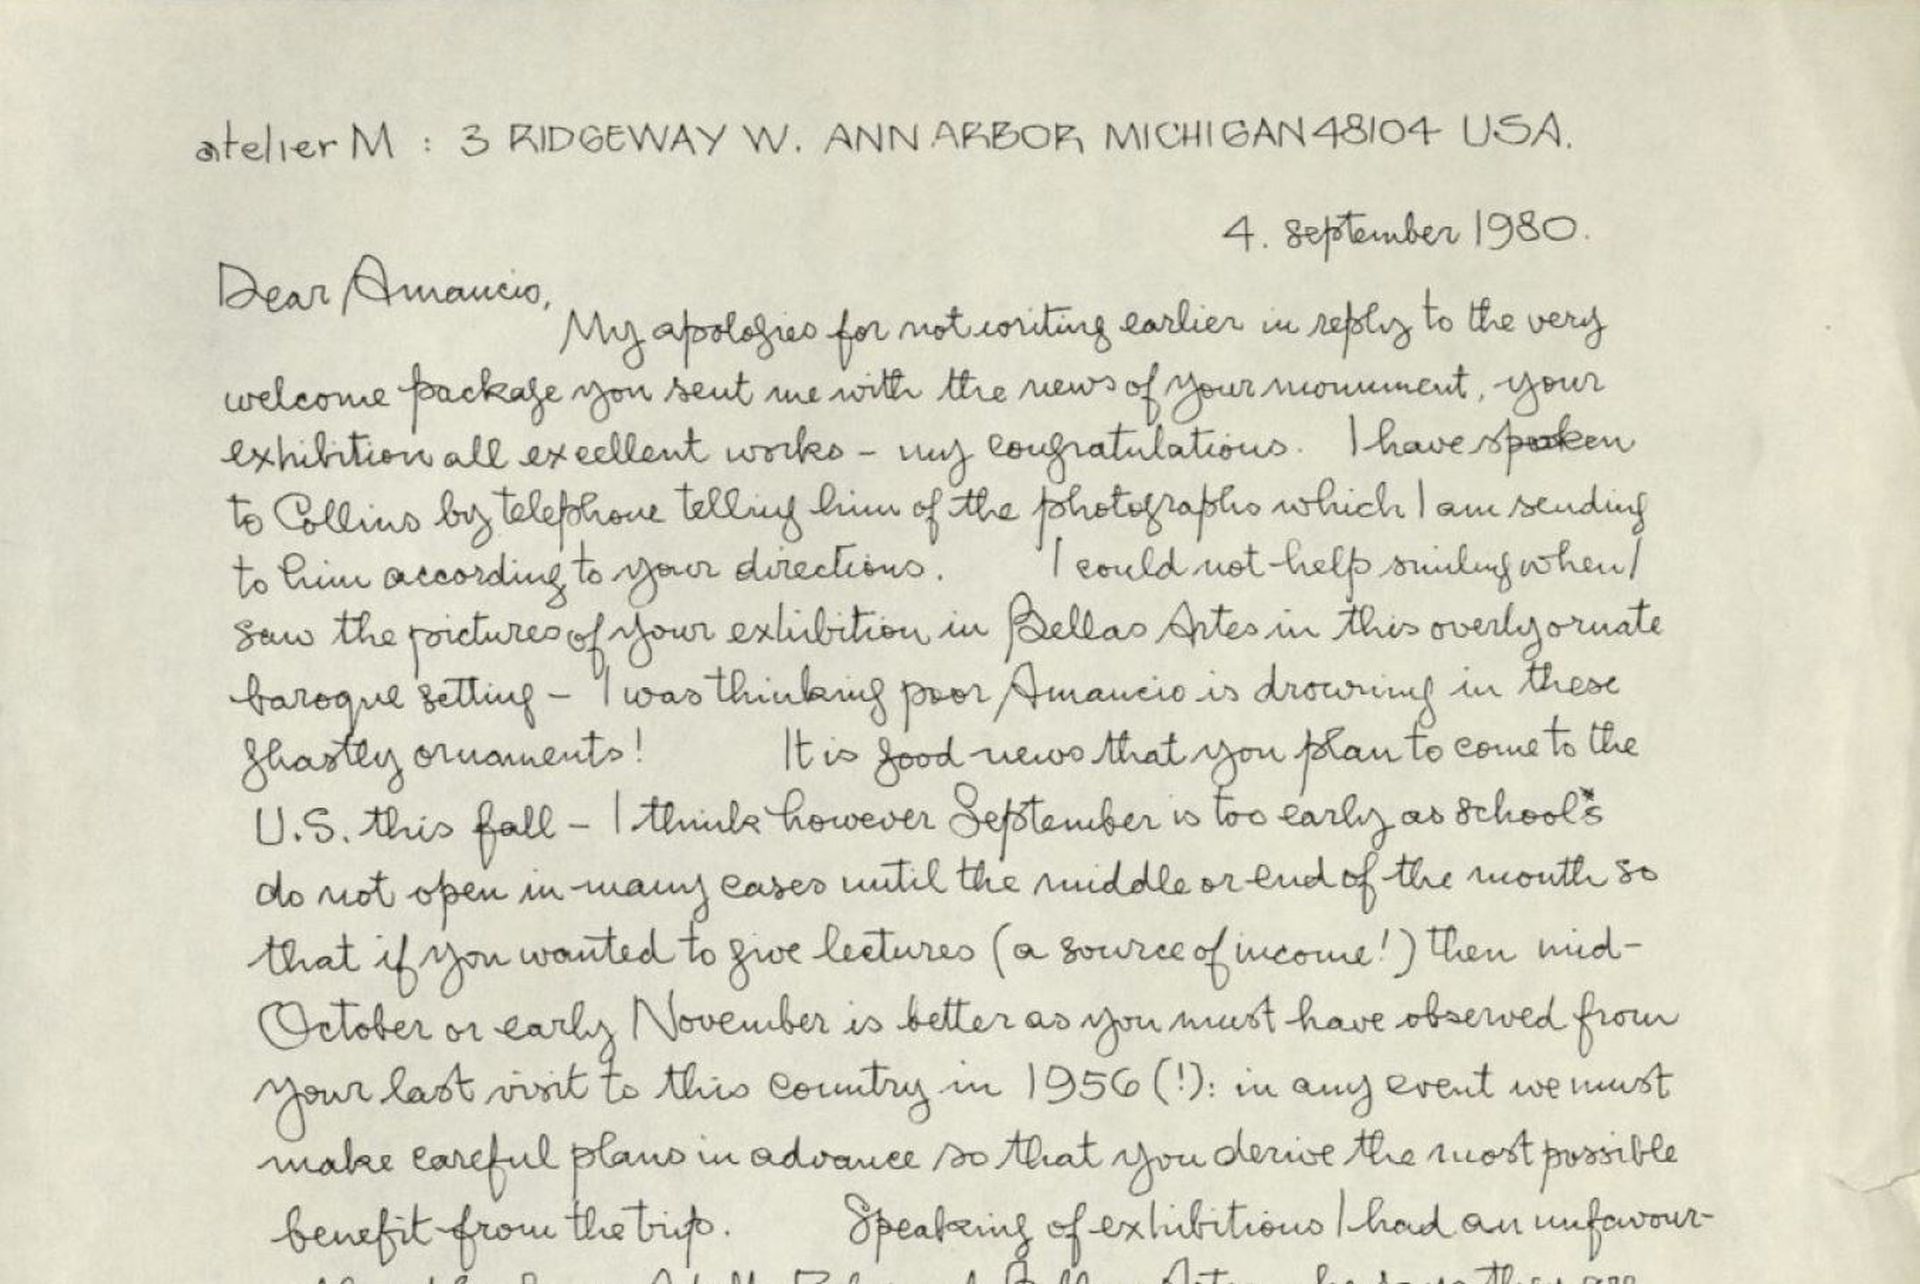 atelier M : 3 RIDGEWAY W. ANN ARBOR MICHIGAN 48104 USA.
4. september 1980.
Dear Amancio,
My apologies for not writing earlier in reply to the very
welcome package you sent me with the news of your monument, your
exhibition all excellent works – my congratulations. I have spoken
to Collins by telephone telling him of the photographs which I am sending
to him according to your directions. I could not help smiling when I
saw the pictures of your exhibition in Bellas Artes in this overly ornate
baroque setting – I was thinking poor Amancio is drowning in these
ghastly ornaments! It is good news that you plan to come to the
U.S. this fall – I think however September is too early as schools
do not open in many cases until the middle or end of the month so
that if you wanted to give lectures (a source of income!) then mid-
October or early November is better as you must have observed from
your last visit to this country in 1956 (!): in any event we must
make careful plans in advance so that you derive the most possible
benefit from the trip. Speaking of exhibitions I had an unfavour-